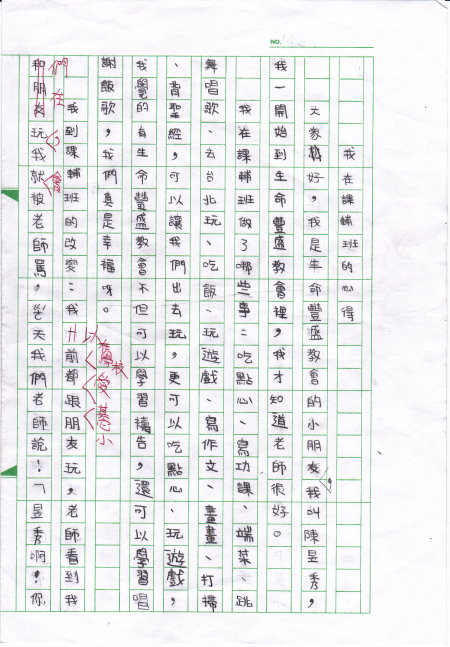 NO.
我在課輔班的心得
大家好,我是生命豐盛教會的小朋友,我叫陳昱秀,
我一開始到生命豐盛教會裡,我才知道老師很好。
我在課輔班做了哪些事:吃點心、寫功課、端菜、跳
舞唱歌、去台北玩、吃飯、玩遊戲、寫作文、畫畫、打掃
、背聖經,可以讓我們出去玩,更可以吃點心、玩遊戲,
我覺的有生命豐盛教會不但可以學習禱告,還可以學習唱
謝飯歌,我們真是幸福呀。
我到課輔班的改變:我以前在學校都愛跟朋友玩,老師看到我
和朋友們在玩我就會被老師罵,每天我們老師說:「昱秀啊!你